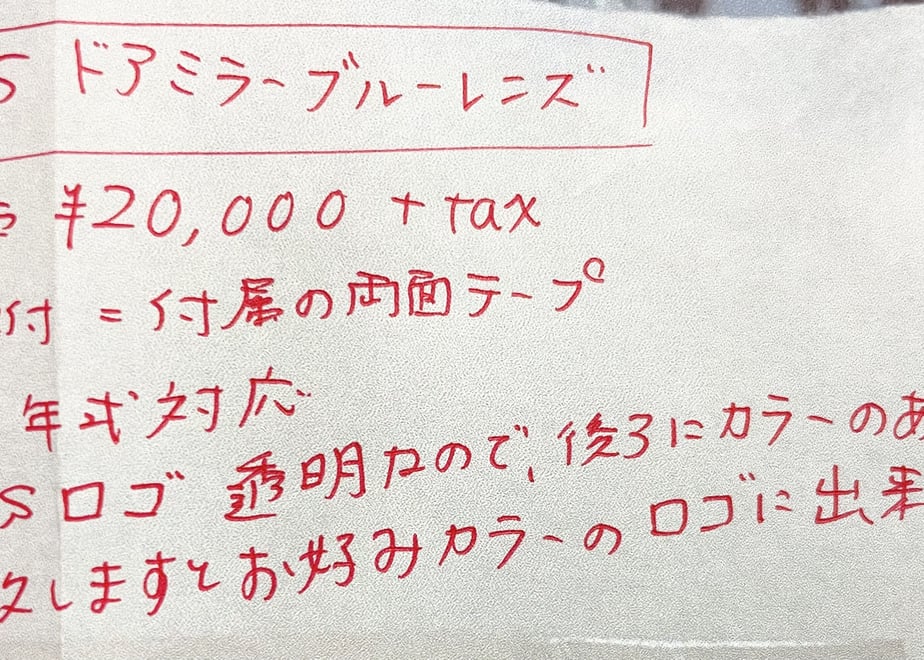 S ドアミラーブルーレンズ
¥20,000 + tax
付 = 付属の両面テープ
年式対応
Sロゴ 透明なので、後ろにカラーのあ
しますとお好みカラーのロゴに出来